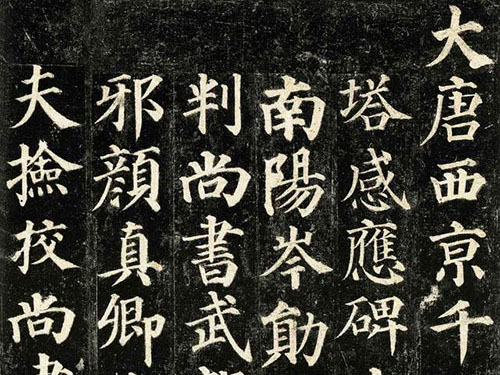 大唐西亰千
塔感應碑
南陽岑勛
判尚書武
邪顏真卿
夫撿挍尚